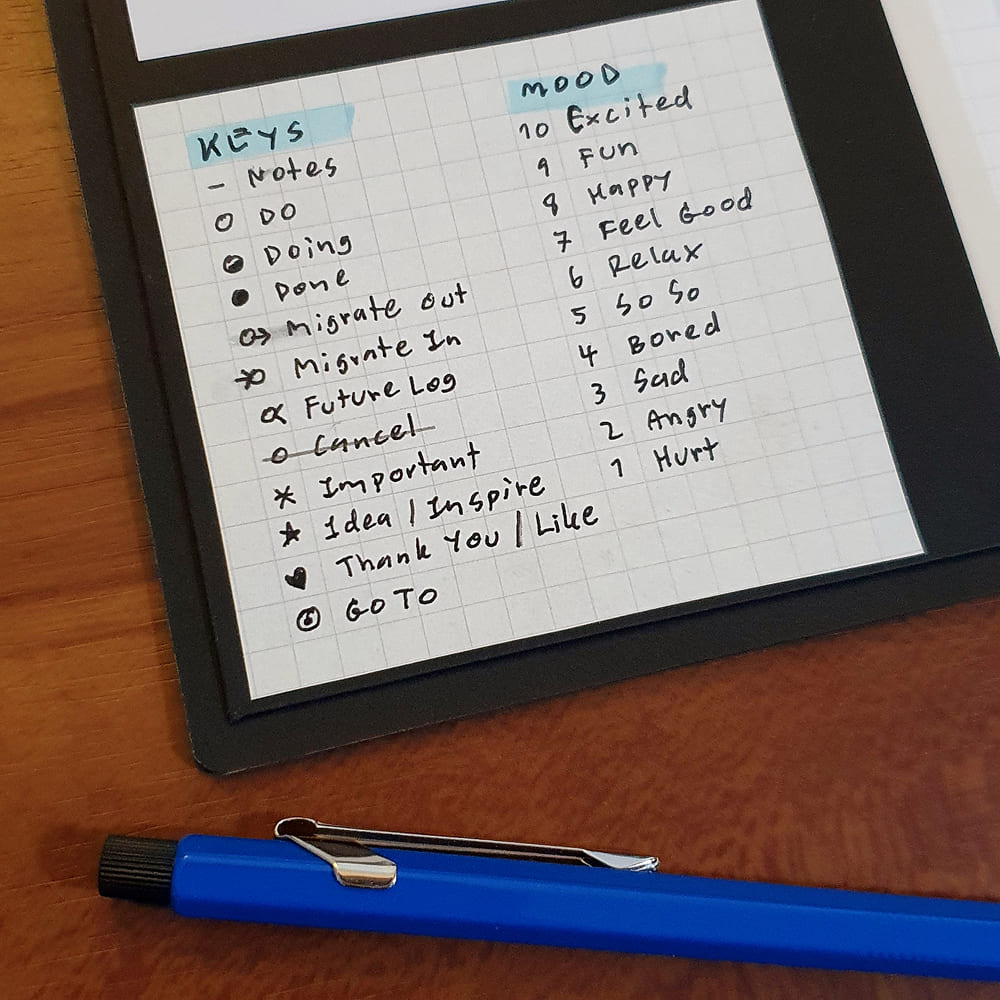 KEYS
- Notes
○ DO
Doing
● Done
Migrate Out
Migrate In
∝ Future Log
o Cancel
* Important
★ Idea / Inspire
♥ Thank You / Like
GO TO
MOOD
10 Excited
9 Fun
8 Happy
7 Feel Good
6 Relax
5 So So
4 Bored
3 Sad
2 Angry
1 Hurt